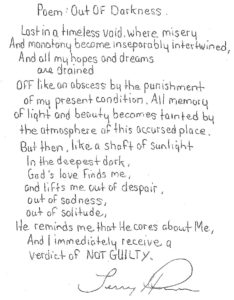 Poem: Out OF Darkness.
Lost in a timeless void, where misery
And monotony become inseparably intertwined,
And all my hopes and dreams
are drained
OFF like an obscess by the punishment
of my present condition. All memory
of light and beauty becomes tainted by
the atmosphere of this accursed place.
But then, like a shaft of sunlight
In the deepest dark,
God's love finds me,
and lifts me out of despair,
out of sadness,
out of solitude,
He reminds me that He cares about Me,
And I immediately receive a
verdict of NOT GUILTY.